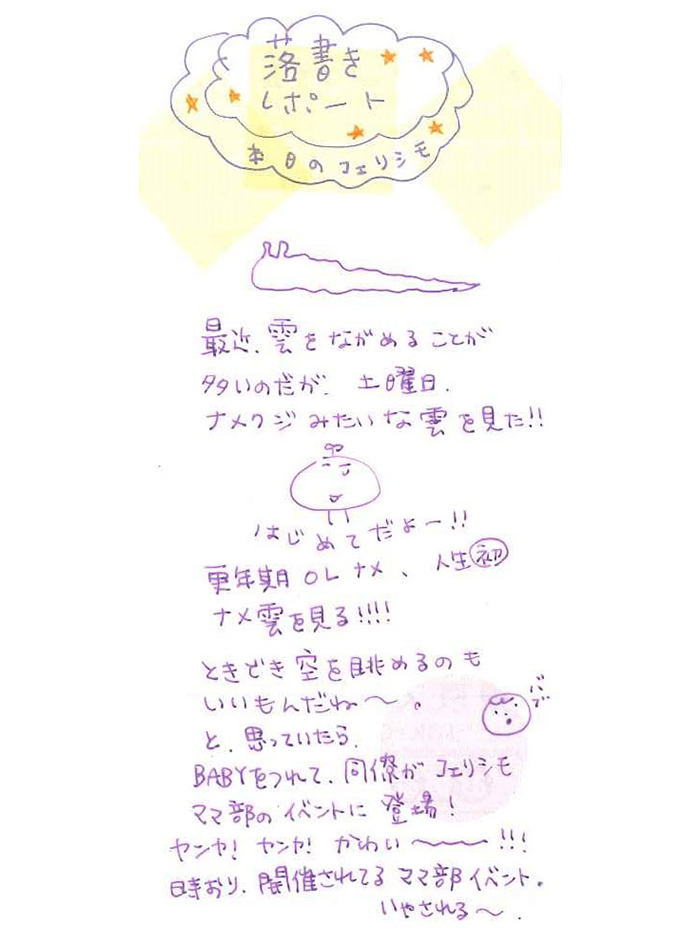 落書き
レポート
本日のフェリシモ
最近、雲をながめることが
多いのだが、土曜日、
ナメクジみたいな雲を見た!!
はじめてだよー!!
更年期OLナメ、人生初
ナメ雲を見る!!!!
ときどき空を眺めるのも
いいもんだね〜。
と、思っていたら、
バブ
BABYをつれて、同僚がフェリシモ
ママ部のイベントに登場!
ヤンヤ!ヤンヤ!かわい〜〜!!!
時おり、開催されてるママ部イベント。
いやされる〜。